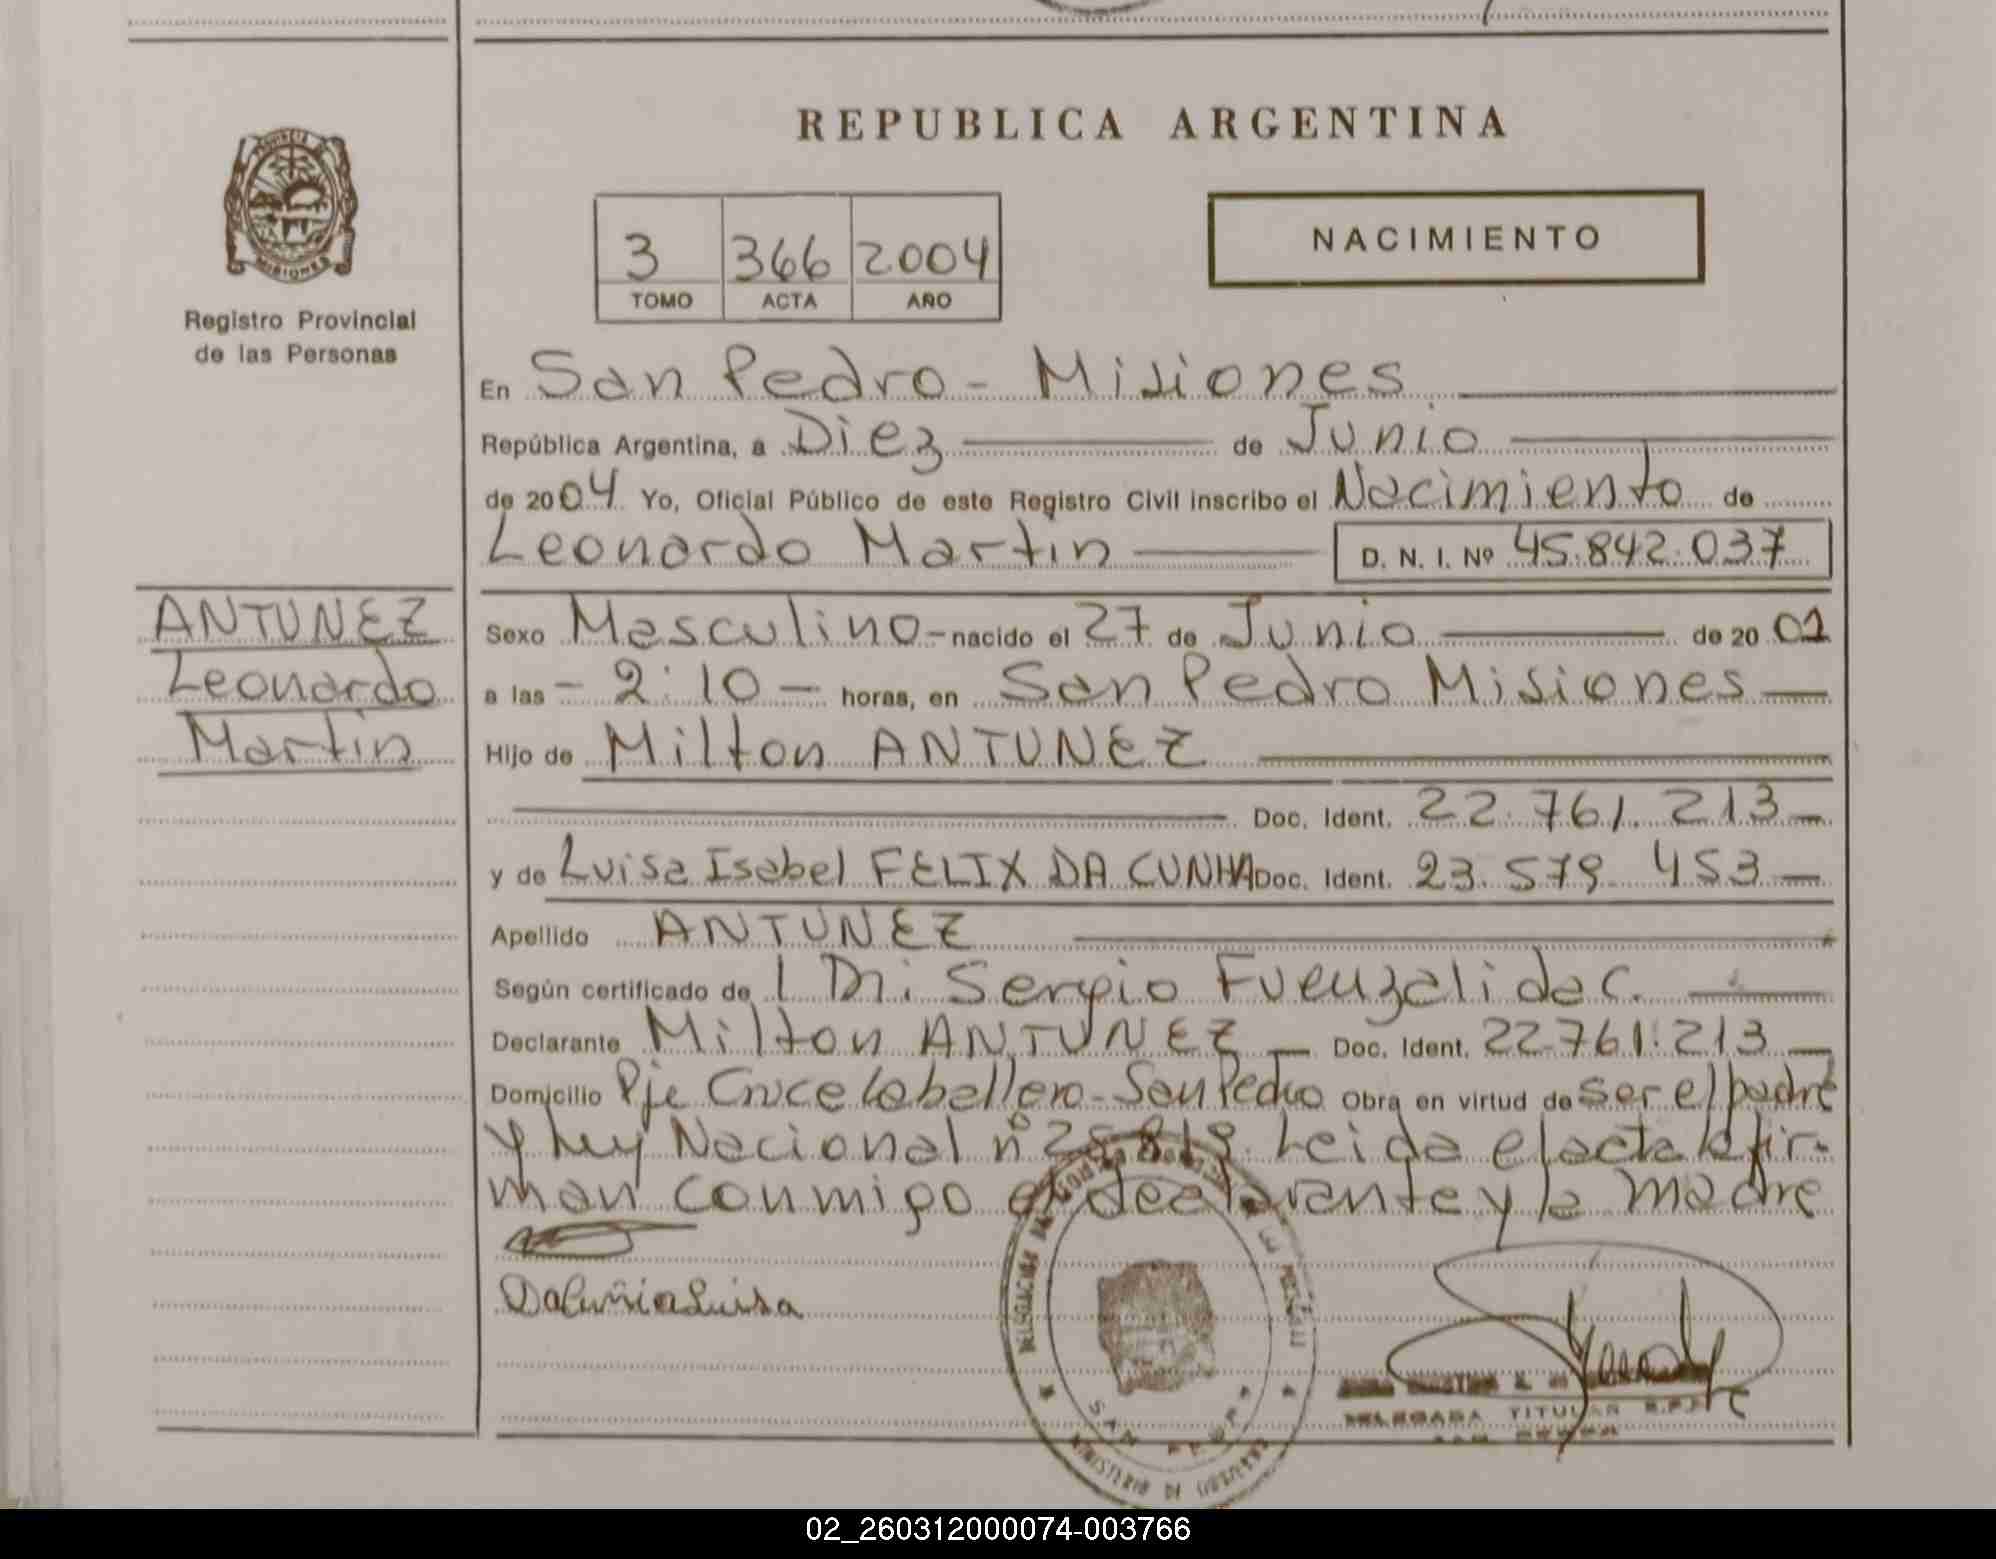 REPUBLICA ARGENTINA
PROVINCIA DE
MISIONES
Registro Provincial
de las Personas
3 366 2004
TOMO ACTA AÑO
NACIMIENTO
En San Pedro - Misiones
República Argentina, a Diez de Junio
de 2004 Yo, Oficial Público de este Registro Civil inscribo el Nacimiento de
Leonardo Martin D. N. I. Nº 45.842.037
ANTUNEZ
Leonardo
Martin
Sexo Masculino - nacido el 27 de Junio de 20 01
a las - 2:10 - horas, en San Pedro Misiones
Hijo de Milton ANTUNEZ
Doc. Ident. 22.761.213
y de Luisa Isabel FELIX DA CUNHA Doc. Ident. 23.579.453
Apellido ANTUNEZ
Según certificado de Dr. Sergio Fuenzalida C.
Declarante Milton ANTUNEZ Doc. Ident. 22.761.213
Domicilio Pje Cruce Caballero - San Pedro Obra en virtud de ser el padre
y Ley Nacional nº 25.819. Leida el acta la fir-
man conmigo el declarante y la madre
Da Cuñia Luisa
SAN PEDRO
MINISTERIO DE GOBIERNO
DELEGADA TITULAR R.P.P.
SAN PEDRO
02_260312000074-003766